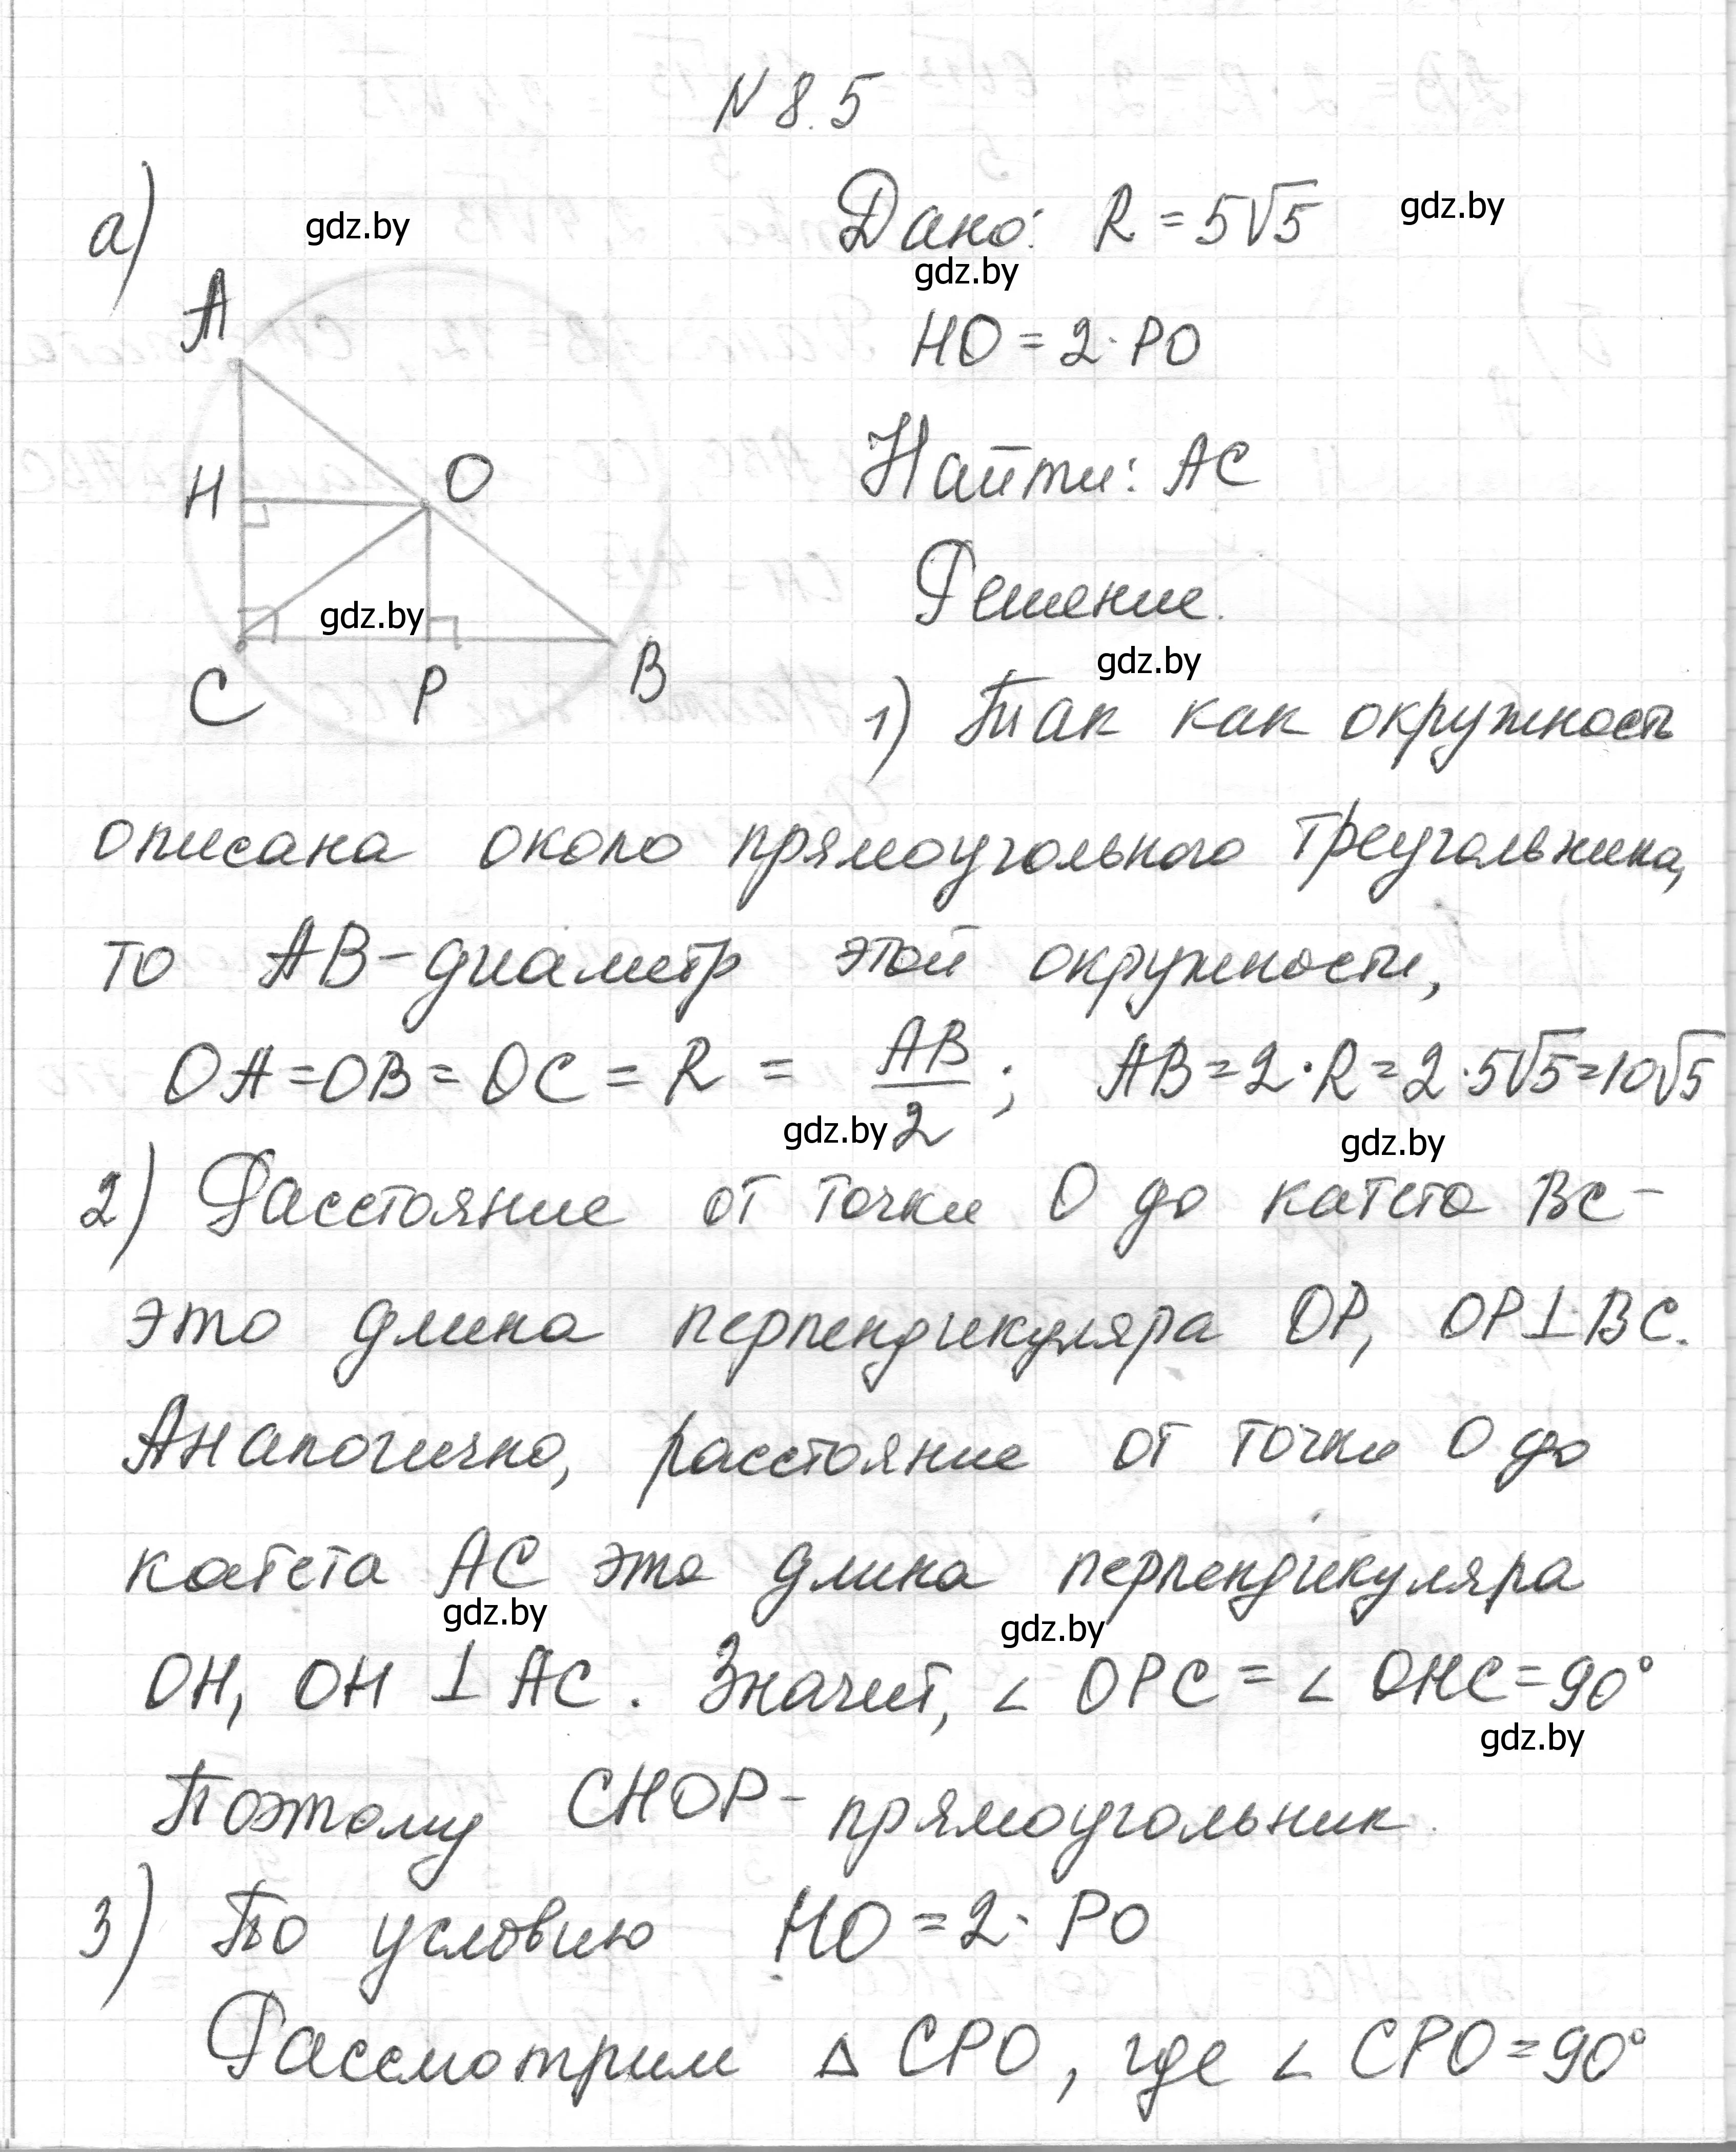 N 8.5
а)
gdz.by
Дано: R = 5√5
gdz.by
gdz.by
A
HO = 2 · PO
H
O
Найти: AC
Решение.
gdz.by
gdz.by
C
P
B
1) Так как окружность
описана около прямоугольного треугольника,
то AB - диаметр этой окружности,
OA = OB = OC = R = AB/2 ; AB = 2 · R = 2 · 5√5 = 10√5
gdz.by
gdz.by
2) Расстояние от точки O до катета BC -
это длина перпендикуляра OP, OP ⊥ BC.
Аналогично, расстояние от точки O до
катета AC это длина перпендикуляра
gdz.by
gdz.by
OH, OH ⊥ AC. Значит, ∠ OPC = ∠ OHC = 90°
gdz.by
Поэтому CHOP - прямоугольник.
3) По условию HO = 2 · PO
Рассмотрим △ CPO, где ∠ CPO = 90°